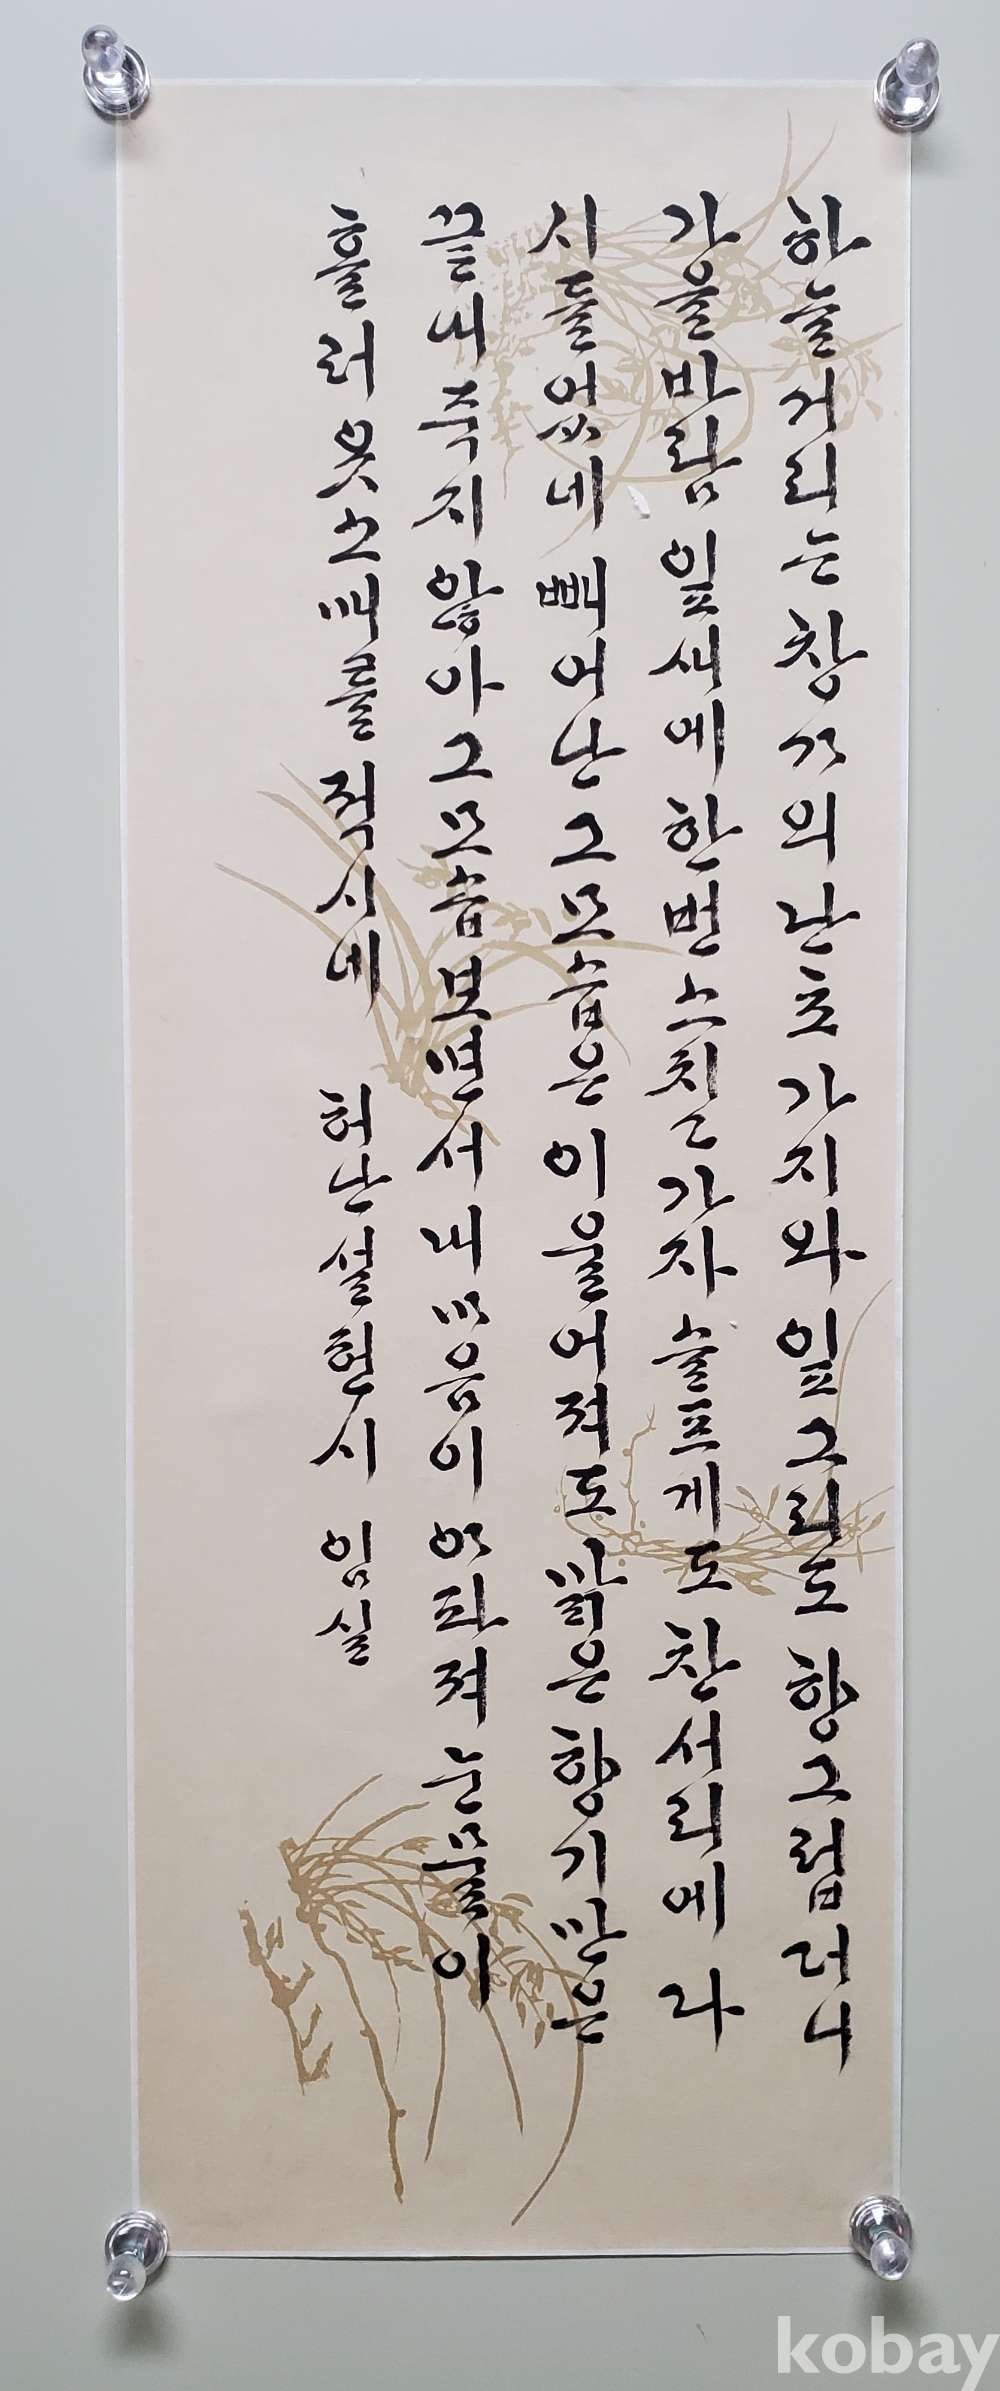 하늘거리는 창가의 난초 가지와 잎 그리도 향그럽더니
가을바람 잎새에 한번 스친 가자 슬프게도 찬서리에 다
시들었네 빼어난 그 모습은 이울어져도 맑은 향기만은
끝내 죽지 않아 그 모습 보면서 내 마음이 아파져 눈물이
흘러 옷소매를 적시네 허난설헌 시 임실
kobay